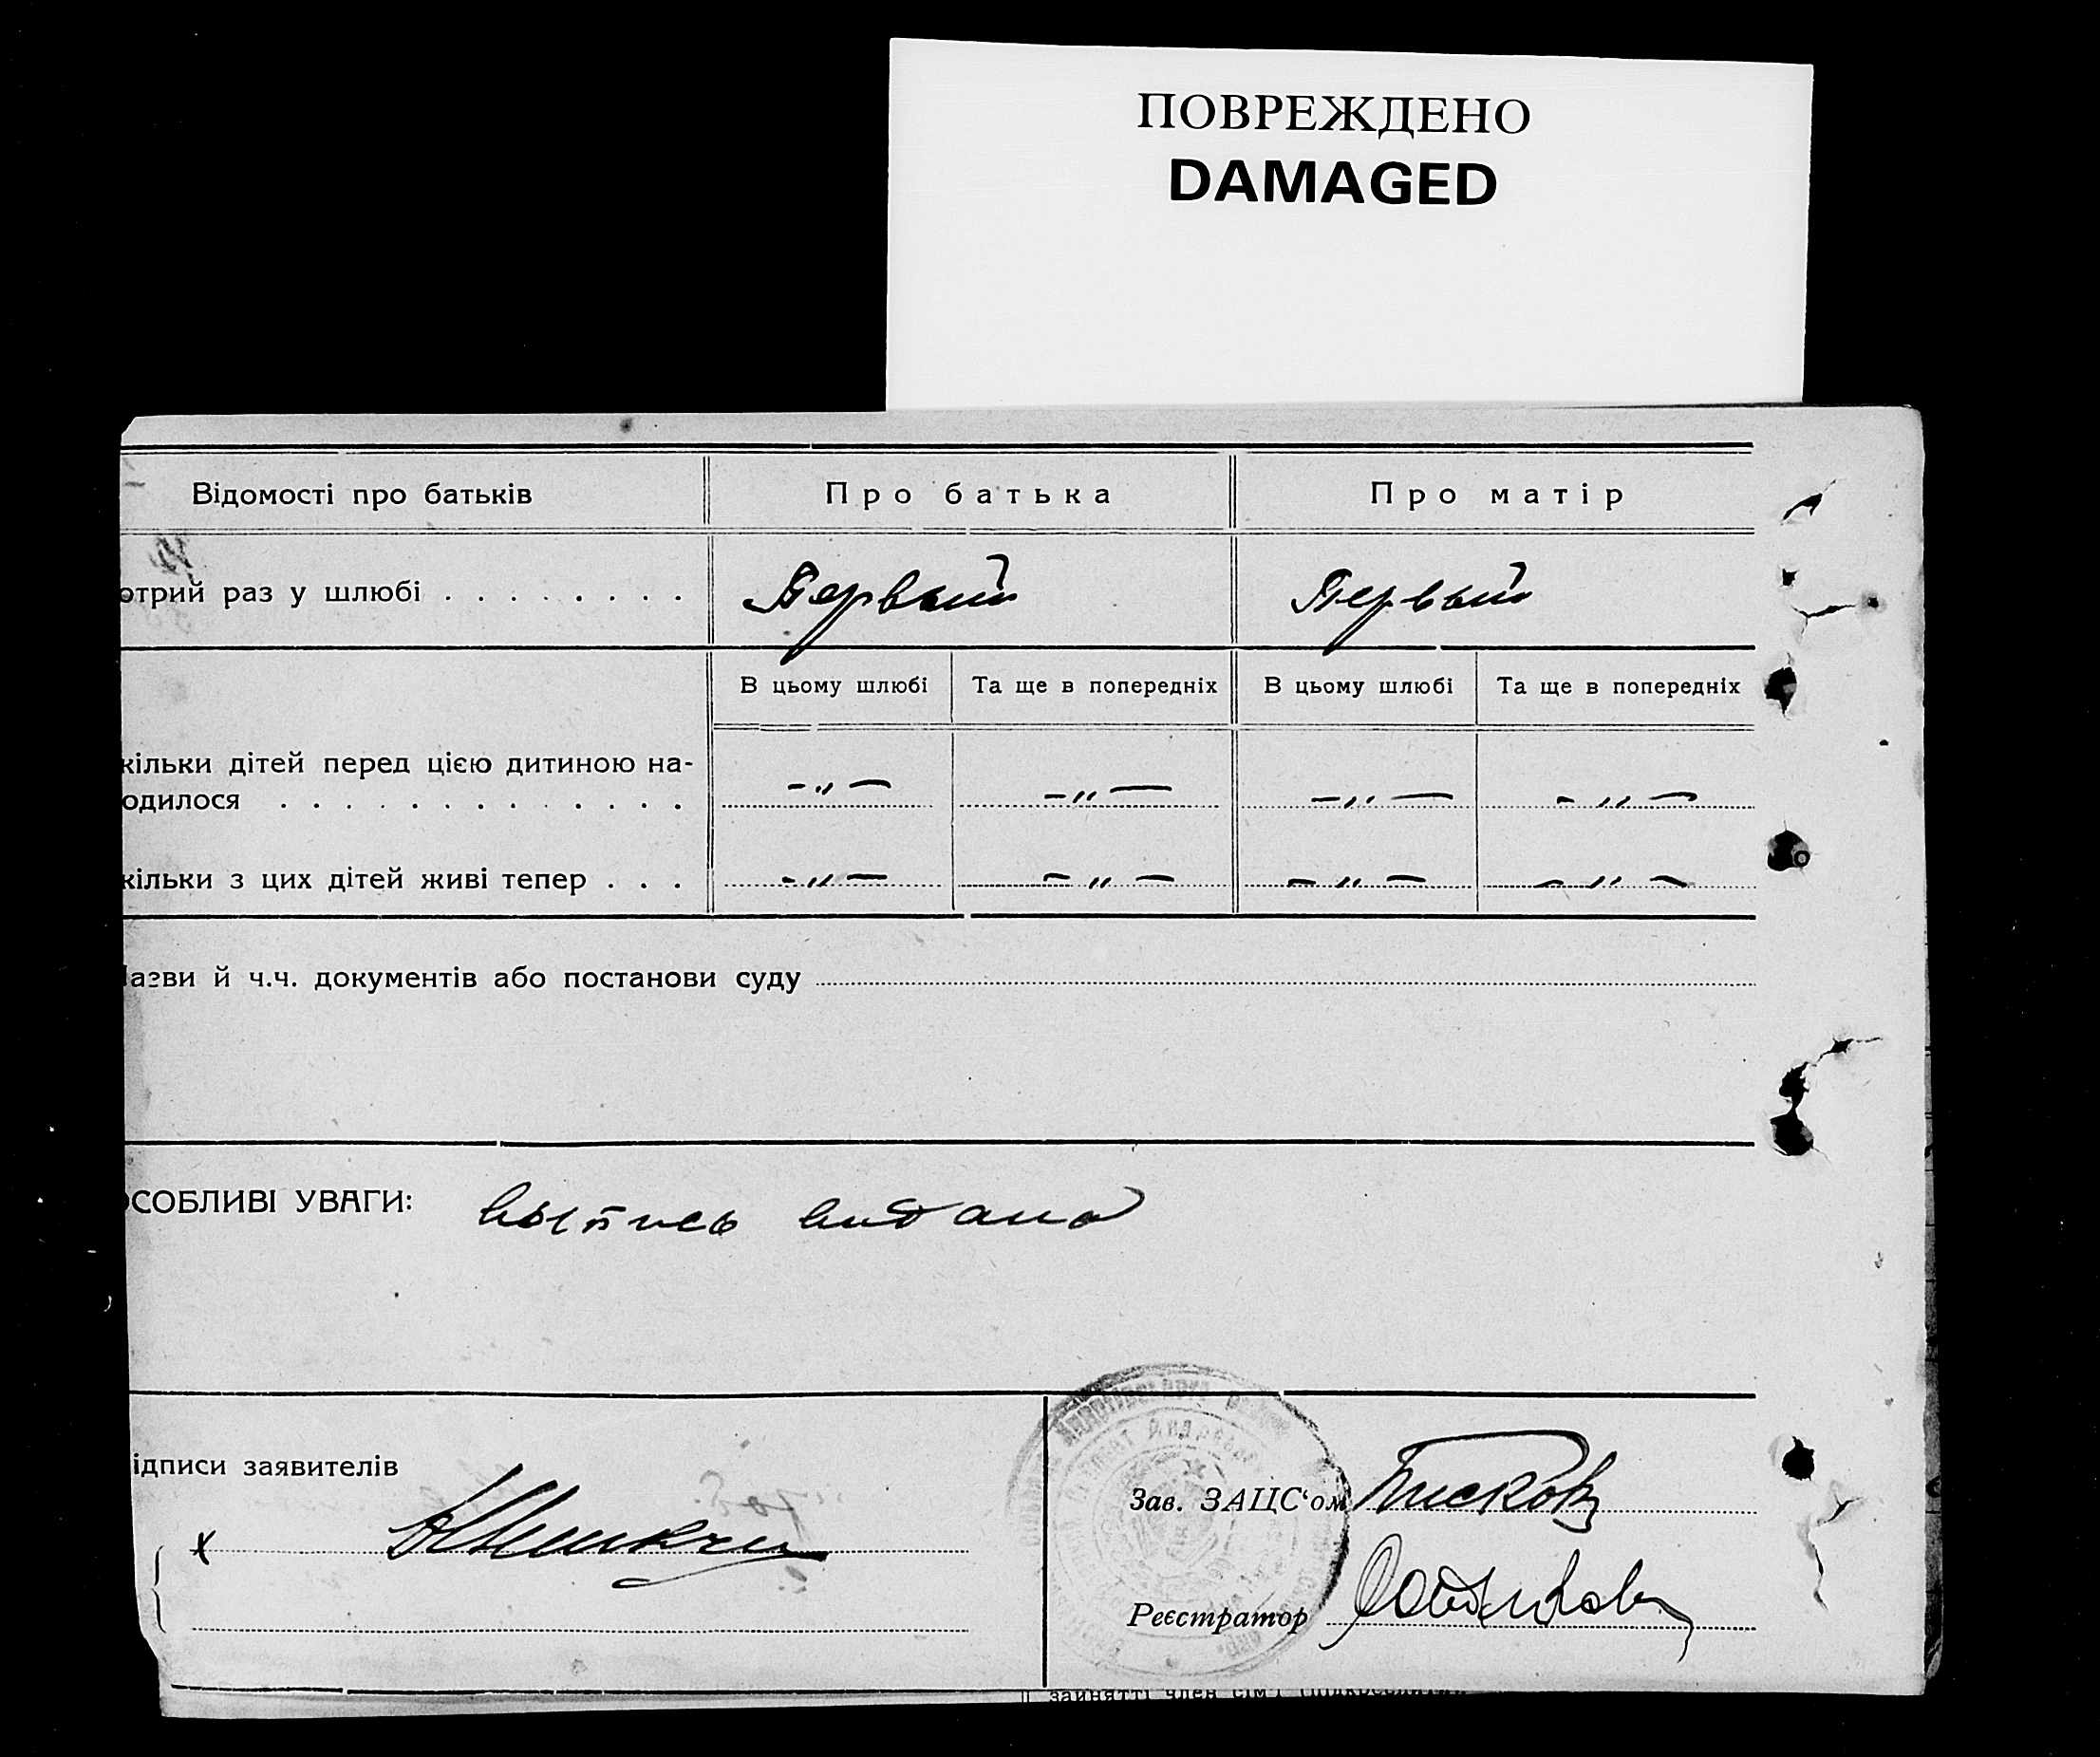 ПОВРЕЖДЕНО
DAMAGED
Відомості про батьків Про батька Про матір
отрий раз у шлюбі . . . . . . . . Первый Первый
В цьому шлюбі Та ще в попередніх В цьому шлюбі Та ще в попередніх
кільки дітей перед цією дитиною на-
одилося . . . . . . . . . . . . . -〃- -〃- -〃- -〃-
кільки з цих дітей живі тепер . . . -〃- -〃- -〃- -〃-
азви й ч.ч. документів або постанови суду
ОСОБЛИВІ УВАГИ: выпись выдана
ідписи заявителів
Зав. ЗАЦС‘ом Писков
х
Реєстратор